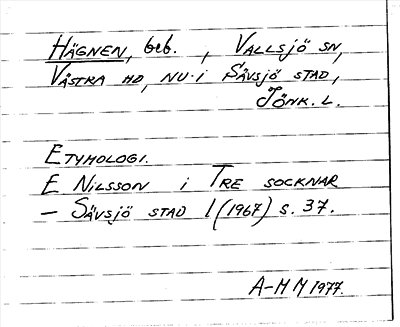 HÄGNEN, beb. , VALLSJÖ SN,
VÄSTRA HD, NU I SÄVSJÖ STAD,
JÖNK. L.
ETYMOLOGI.
E NILSSON i TRE SOCKNAR
– SÄVSJÖ STAD 1 (1967) s. 37.
A-M M 1977.